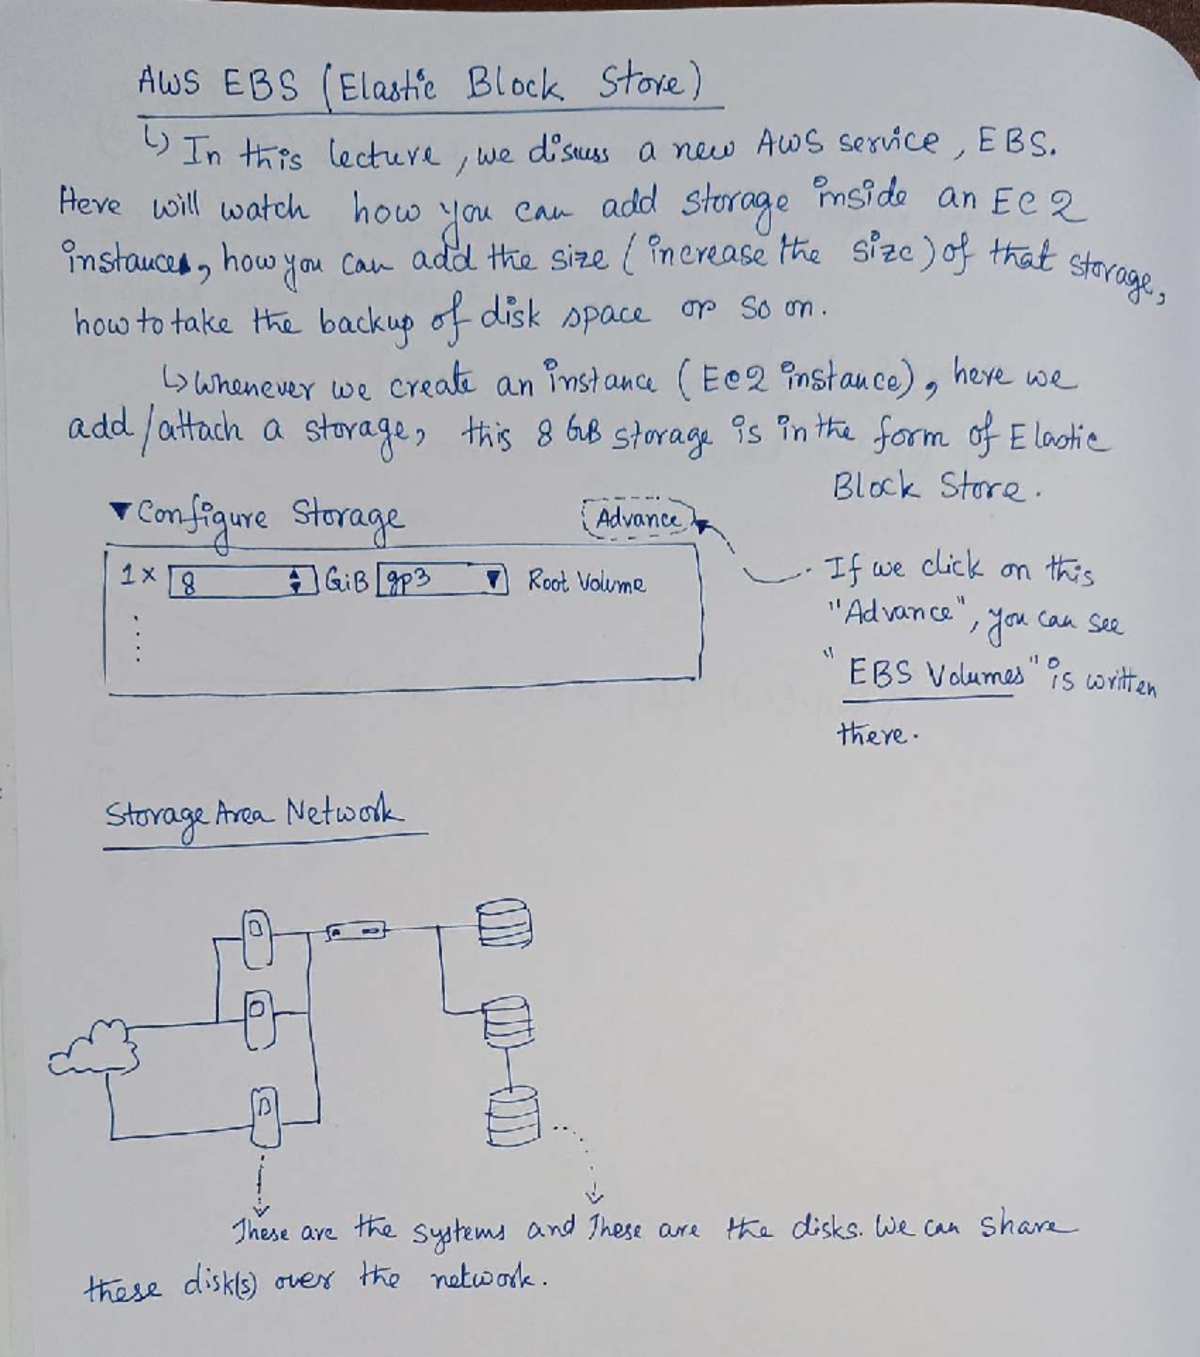 AWS EBS (Elastic Block Store)
↳ In this lecture, we discuss a new AWS service, EBS.
Here will watch how you can add storage inside an EC2
instances, how you can add the size (increase the size) of that storage,
how to take the backup of disk space or so on.
↳ Whenever we create an instance (EC2 instance), here we
add/attach a storage, this 8 GB storage is in the form of Elastic
Block Store.
▼ Configure Storage
Advance
1 x 8 GiB gp3 ▼ Root Volume
If we click on this
"Advance", you can see
"EBS Volumes" is written
there.
Storage Area Network
These are the systems and These are the disks. We can share
these disk(s) over the network.